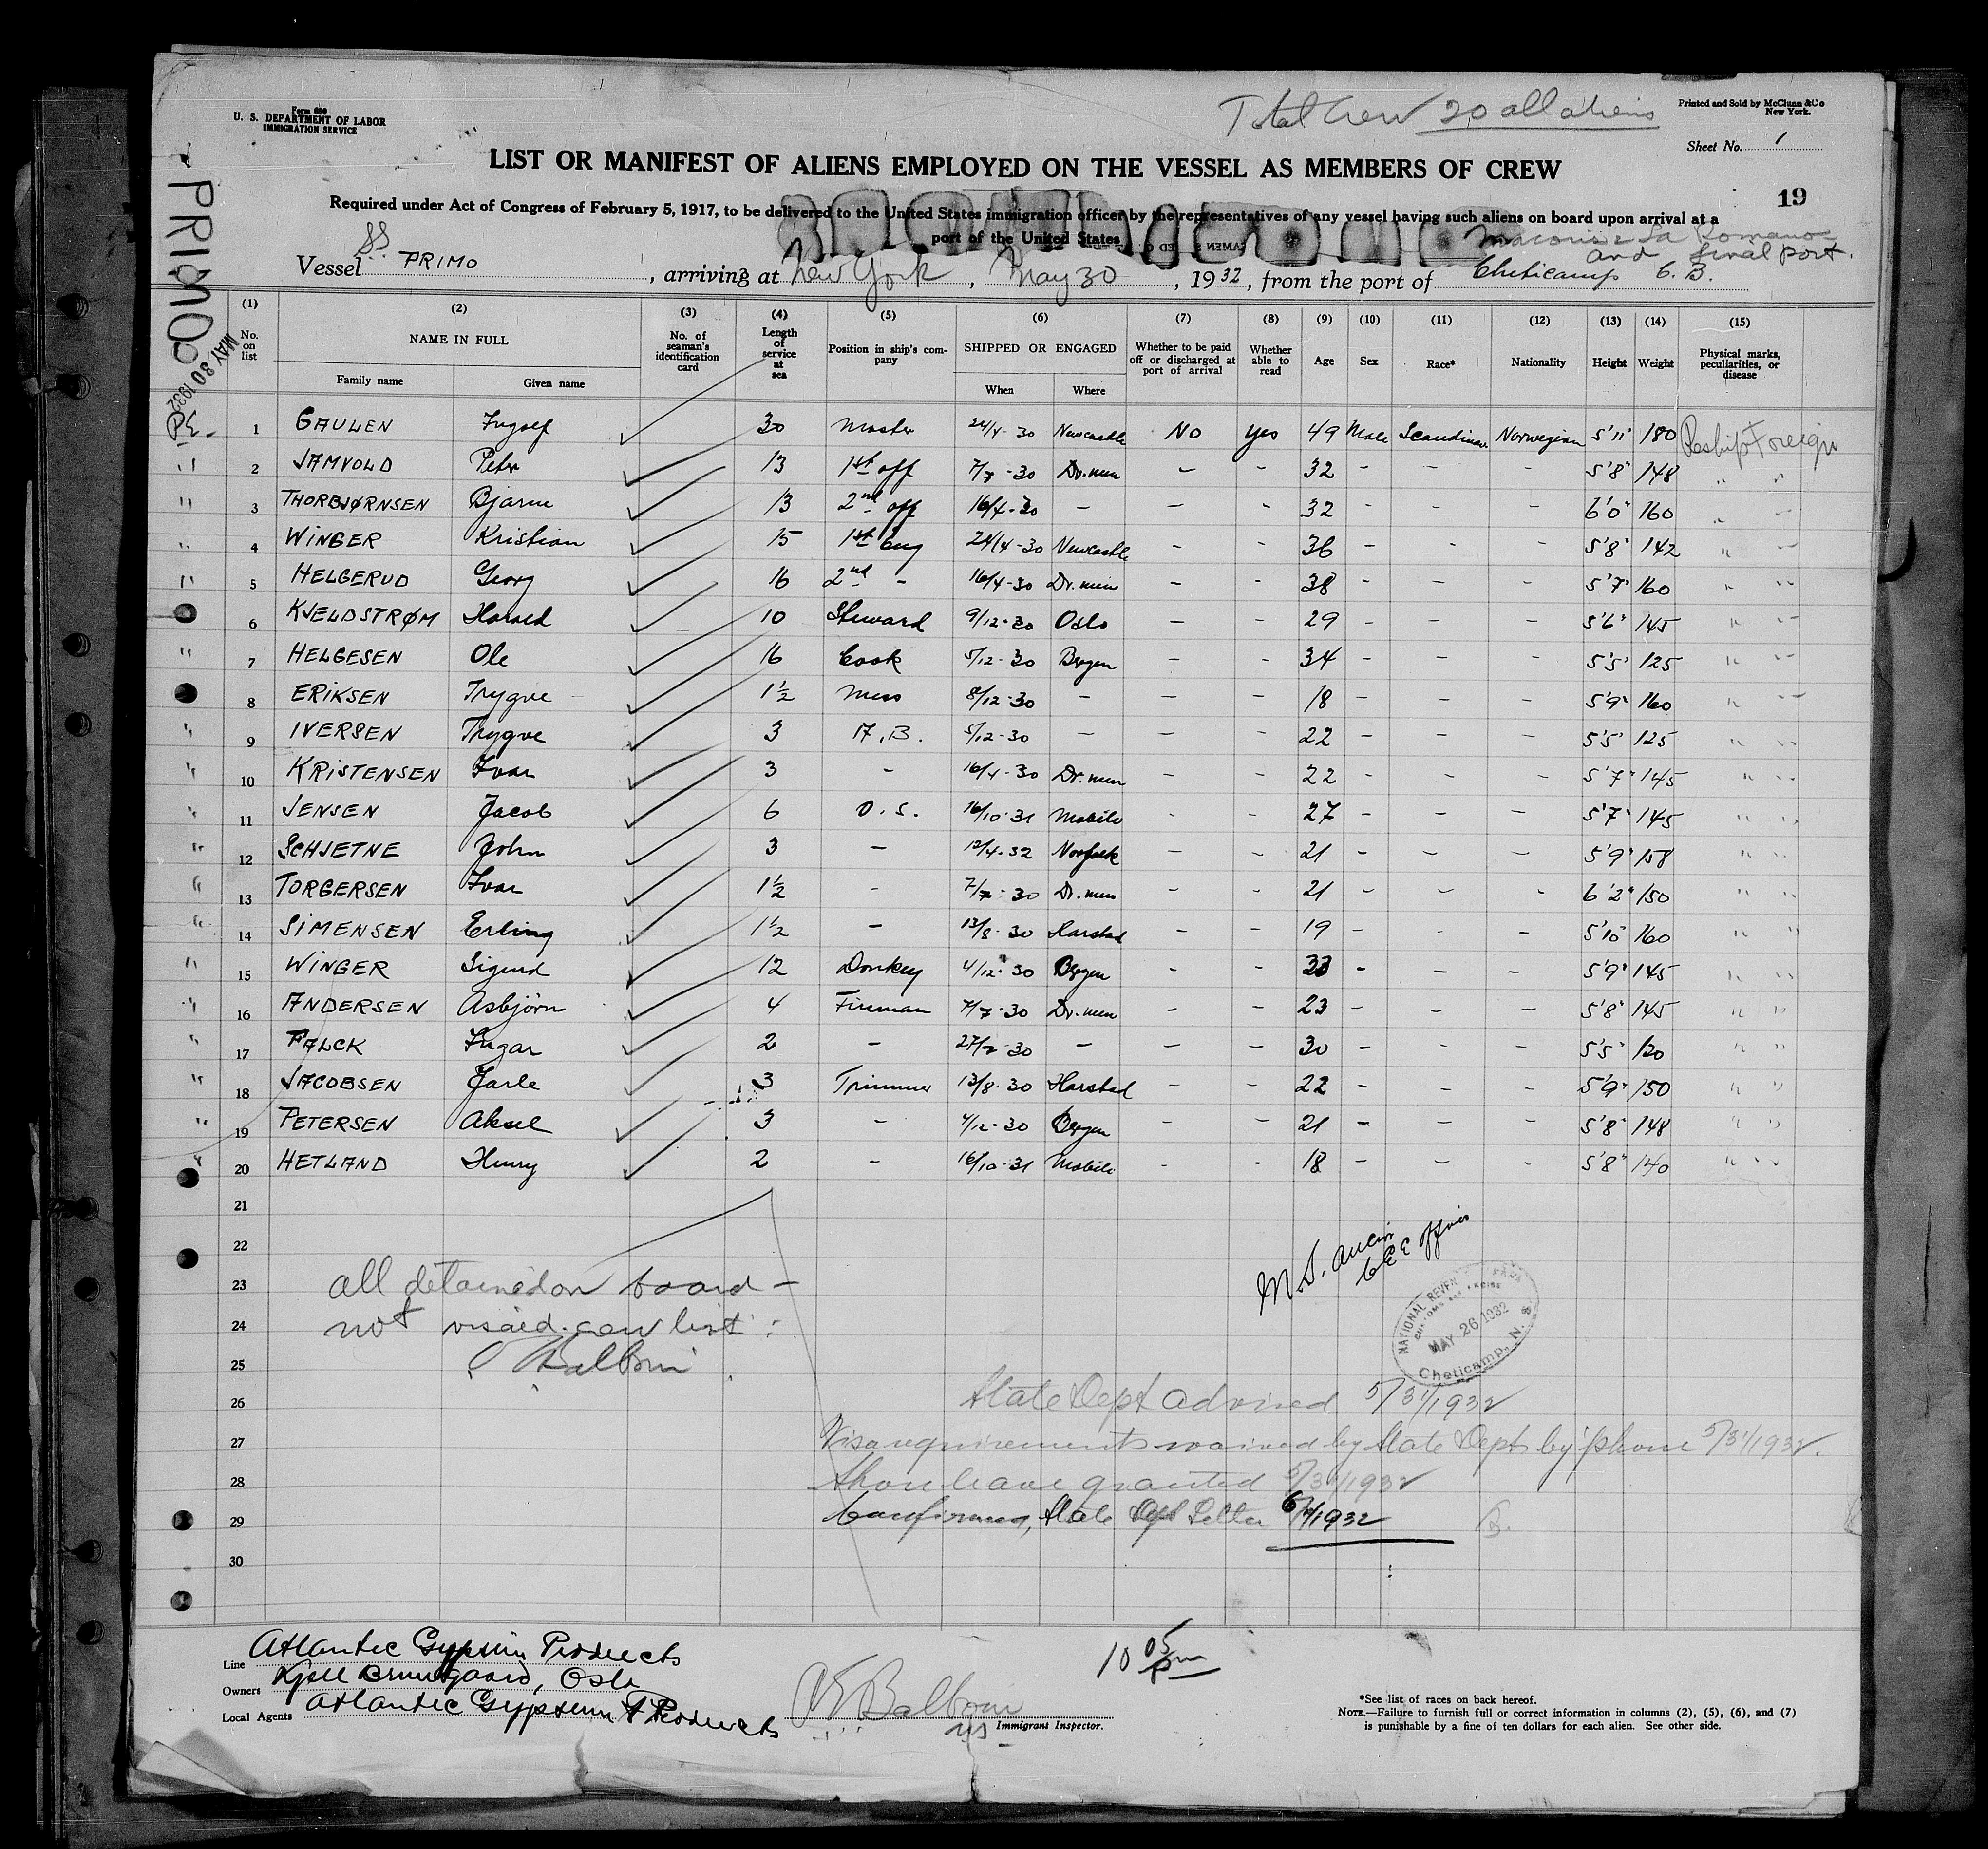 Form 689
U. S. DEPARTMENT OF LABOR
IMMIGRATION SERVICE
Total Crew 20 all aliens
Printed and Sold by McClunn & Co
New York.
Sheet No. 1
LIST OR MANIFEST OF ALIENS EMPLOYED ON THE VESSEL AS MEMBERS OF CREW
19
Required under Act of Congress of February 5, 1917, to be delivered to the United States immigration officer by the representatives of any vessel having such aliens on board upon arrival at a
port of the United States
Macoris & La Romana
and final port.
Vessel SS PRIMO, arriving at New York, May 30, 1932, from the port of Cheticamp C. B.
PRIMO
MAY 30 1932
(1) (2) (3) (4) (5) (6) (7) (8) (9) (10) (11) (12) (13) (14) (15)
No. on list NAME IN FULL No. of seaman's identification card Length of service at sea Position in ship's company SHIPPED OR ENGAGED Whether to be paid off or discharged at port of arrival Whether able to read Age Sex Race* Nationality Height Weight Physical marks, peculiarities, or disease
Family name Given name When Where
1 GAULEN Ingolf 30 Master 24/4-30 Newcastle No yes 49 Male Scandinav. Norwegian 5'11" 180 Reship Foreign
2 JAMVOLD Peter 13 1st off 7/7-30 Dr.men - - 32 - - - 5'8" 148 " "
3 THORBJØRNSEN Bjarne 13 2nd off 16/4-30 - - - 32 - - - 6'0" 160 " "
4 WINGER Kristian 15 1st Eng 24/4-30 Newcastle - - 36 - - - 5'8" 142 " "
5 HELGERUD Georg 16 2nd - 16/4-30 Dr.men - - 38 - - - 5'7" 160 " "
6 KJELDSTRØM Harald 10 Steward 9/12-30 Oslo - - 29 - - - 5'6" 145 " "
7 HELGESEN Ole 16 Cook 5/12-30 Bergen - - 34 - - - 5'5" 125 " "
8 ERIKSEN Trygve 1½ Mess 8/12-30 - - - 18 - - - 5'9" 160 " "
9 IVERSEN Trygve 3 A.B. 5/12-30 - - - 22 - - - 5'5" 125 " "
10 KRISTENSEN Ivar 3 - 16/4-30 Dr.men - - 22 - - - 5'7" 145 " "
11 JENSEN Jacob 6 O.S. 16/10-31 Mobile - - 27 - - - 5'7" 145 " "
12 SCHJETNE John 3 - 12/4-32 Norfolk - - 21 - - - 5'9" 158 " "
13 TORGERSEN Ivar 1½ - 7/7-30 Dr.men - - 21 - - - 6'2" 150 " "
14 SIMENSEN Erling 1½ - 13/8-30 Harstad - - 19 - - - 5'10" 160 " "
15 WINGER Sigurd 12 Donkey 4/12-30 Bergen - - 33 - - - 5'9" 145 " "
16 ANDERSEN Asbjörn 4 Fireman 7/7-30 Dr.men - - 23 - - - 5'8" 145 " "
17 FALCK Ingar 2 - 27/2-30 - - - 30 - - - 5'5" 120 " "
18 JACOBSEN Jarle 3 Trimmer 13/8-30 Harstad - - 22 - - - 5'9" 150 " "
19 PETERSEN Aksel 3 - 4/12-30 Bergen - - 21 - - - 5'8" 148 " "
20 HETLAND Henry 2 - 16/10-31 Mobile - - 18 - - - 5'8" 140 " "
21
22
23 all detained on board -
24 not visaed crew list:
25
NATIONAL REVENUE
CUSTOMS AND EXCISE
MAY 26 1932
Cheticamp, N.S.
26 State Dept advised 5/31/1932
27 Visa requirements waived by State Dept by phone 5/31/1932.
28 Shore leave granted 5/31/1932
29 Confirmed, State Dept Letter
30
Line Atlantic Gypsum Products
Owners Oslo
Local Agents Atlantic Gypsum Products
10 05 pm
Immigrant Inspector.
*See list of races on back hereof.
NOTE.—Failure to furnish full or correct information in columns (2), (5), (6), and (7)
is punishable by a fine of ten dollars for each alien. See other side.